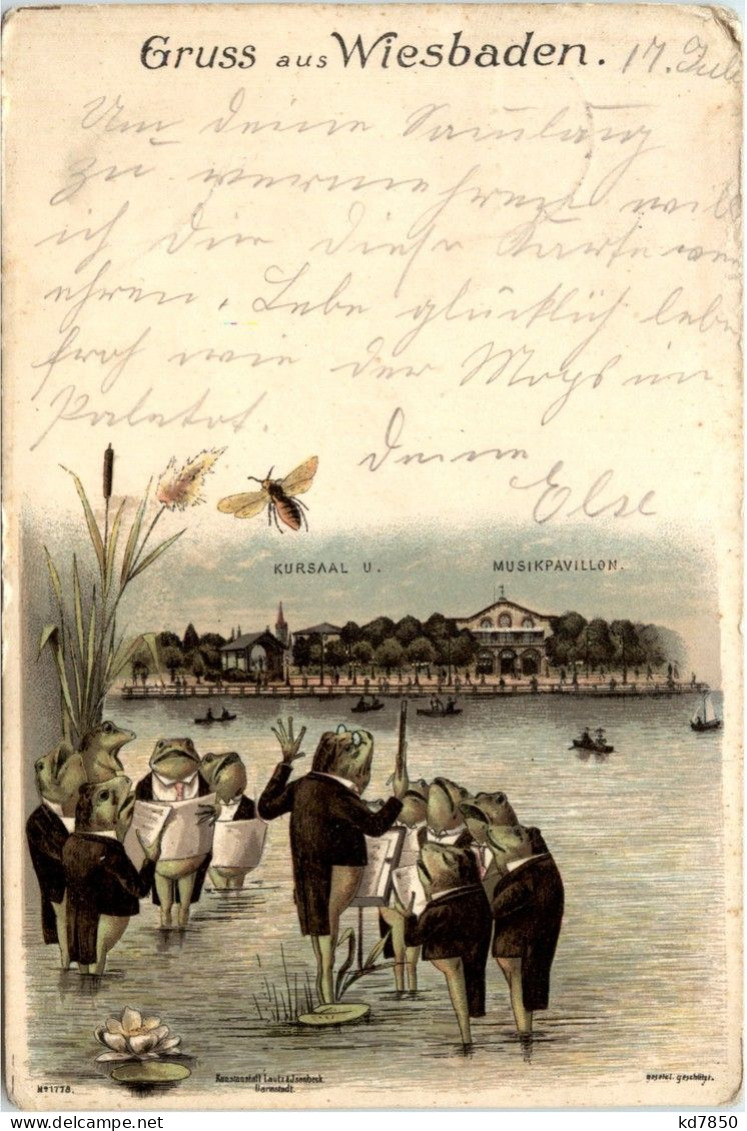 Gruss aus Wiesbaden. 17. Juli
Um deine Samlung
zu vermehren will
ich Dir diese Karte ver-
ehren. Lebe glücklich lebe
froh wie der Mops im
Paletot.
Deine
Else
KURSAAL U. MUSIKPAVILLON.
Nº 1778.
Kunstanstalt Lautz & Isenbeck
Darmstadt.
gesetzl. geschützt.
kd7850